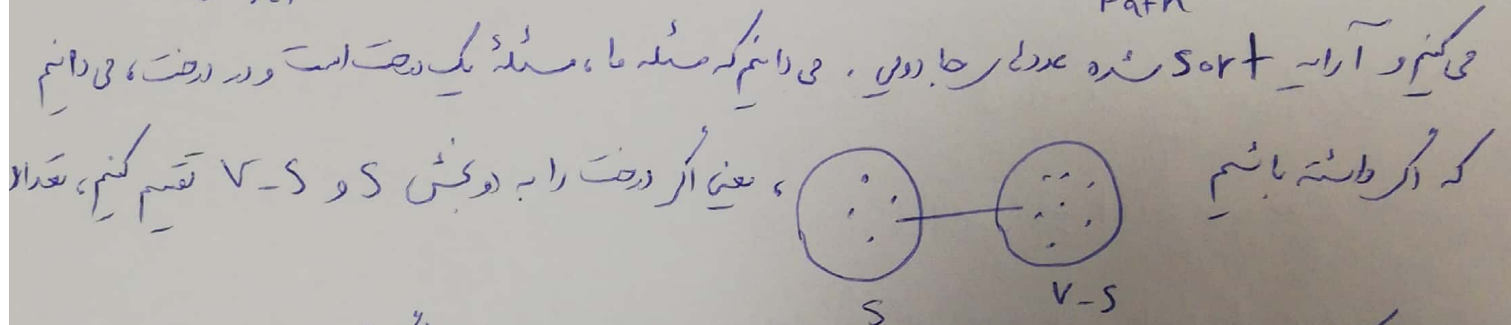 Path
می کنیم و آرایه Sort شده عددهای جادویی. می دانیم که مسئله ما، مسئلهٔ یک درخت است و در درخت، می دانیم
که اگر داشته باشیم ، یعنی اگر درخت را به دو بخش S و V-S تقسیم کنیم، تعداد
S V-S